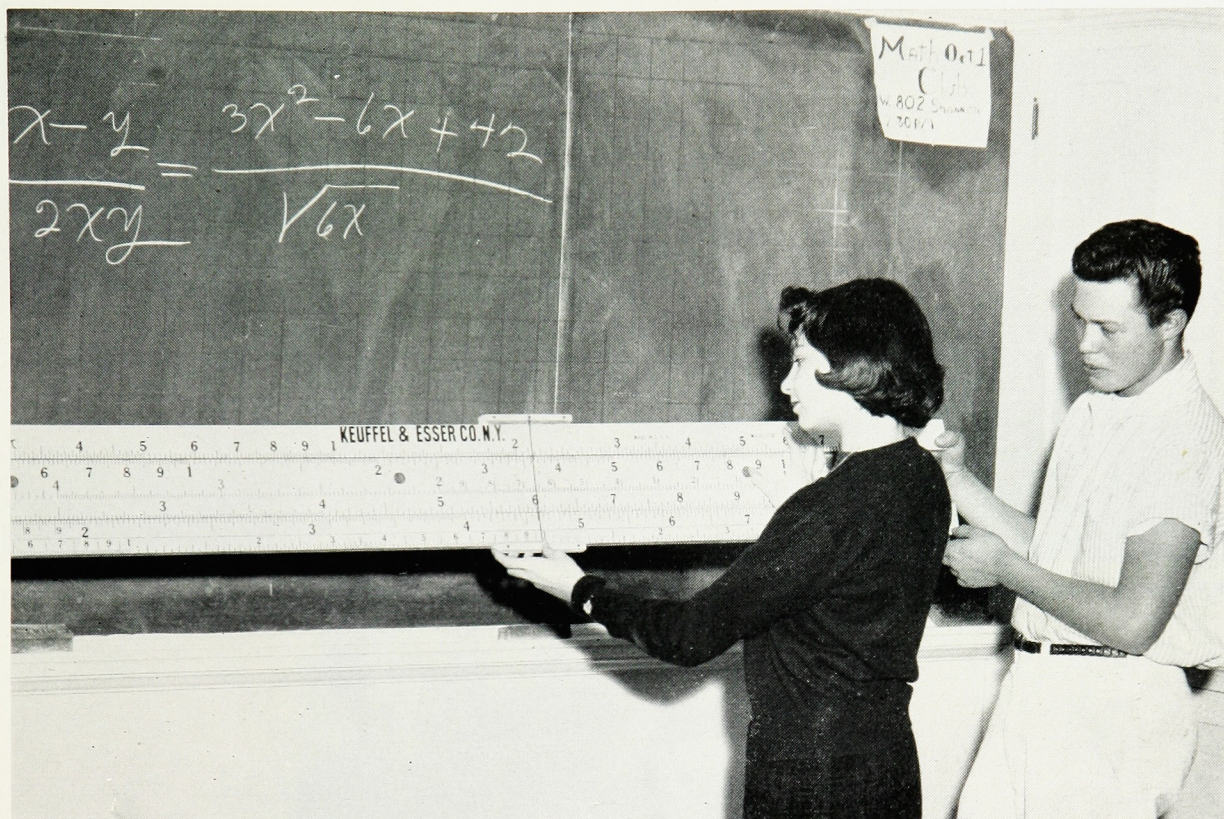 x - y / 2xy = 3x² - 6x + 42 / √6x
Math Oct 1
Club
W. 802
KEUFFEL & ESSER CO. N.Y.
4 5 6 7 8 9 1 2 3 4 5 6 7
6 7 8 9 1 2 3 4 5 6 7 8 9 1
4 3 2
3 4 5 6 7 8 9
2 3 4 5 6 7
6 7 8 9 1 2 3 4 5 6 7 8 9 1